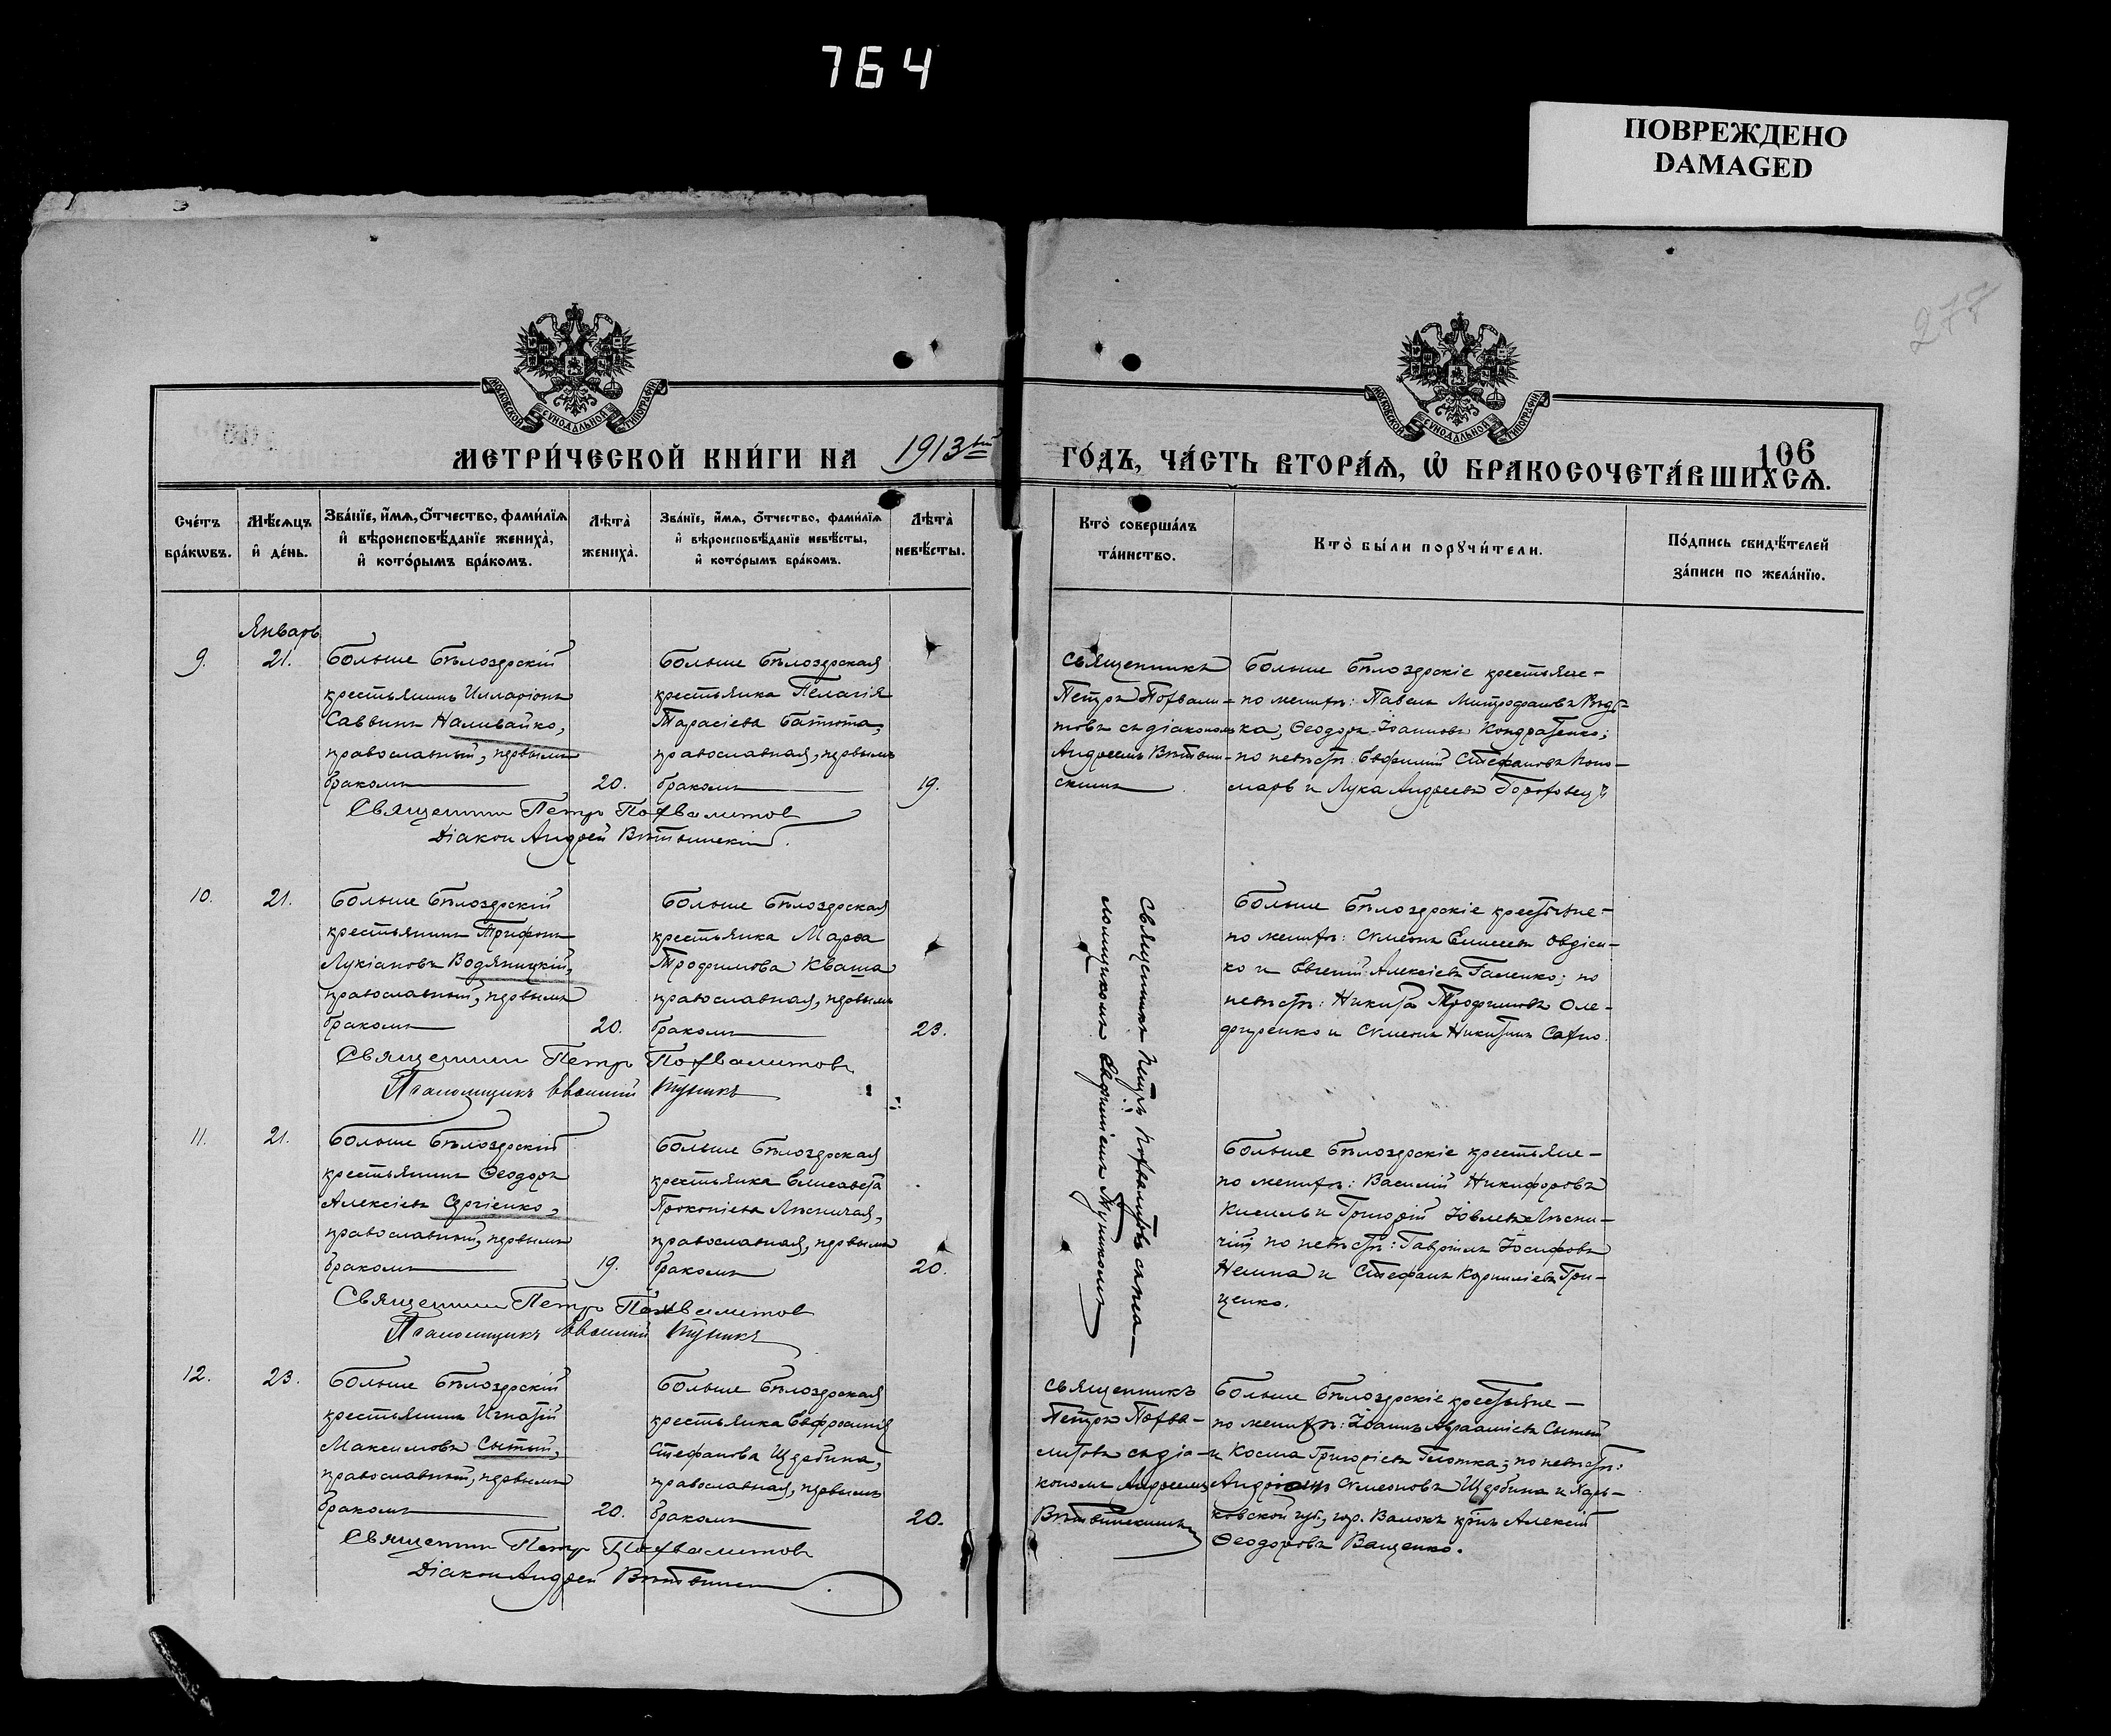 764
ПОВРЕЖДЕНО
DAMAGED
277
МОСКОВСКОЙ СѴНОДАЛЬНОЙ ТИПОГРАФІИ
МОСКОВСКОЙ СѴНОДАЛЬНОЙ ТИПОГРАФІИ
106
МЕТРИ́ЧЕСКОЙ КНИ́ГИ НА 1913ый ГО́ДЪ, ЧА́СТЬ ВТОРА́Ѧ, Ѽ БРАКОСОЧЕТА́ВШИХСѦ.
Сче́тъ бра́кѡвъ.
Мѣ́сѧцъ и҆ де́нь.
Зва́нїе, и҆́мѧ, ѻ҆́тчество, фами́лїѧ
и҆ вѣроисповѣ́данїе жениха̀,
и҆ кото́рымъ бра́комъ.
Лѣта̀ жениха̀.
Зва́нїе, и҆́мѧ, ѻ҆́тчество, фами́лїѧ
и҆ вѣроисповѣ́данїе невѣ́сты,
и҆ кото́рымъ бра́комъ.
Лѣта̀ невѣ́сты.
Кто̀ соверша́лъ та́инство.
Кто̀ бы́ли порꙋчи́тели.
По́дпись свидѣ́телей за́писи по жела́нїю.
Январь
9.
21.
Больше Бѣлозерскій
крестьянинъ Илларіонъ
Саввинъ Наливайко,
православный, первымъ
бракомъ
20.
Больше Бѣлозерская
крестьянка Пелагія
Тарасіева Батюта,
православная, первымъ
бракомъ
19.
Священникъ
Петръ Похвали-
товъ съ діакономъ
Андреемъ Витвин-
скимъ
Больше Бѣлозерскіе крестьяне-
по женихѣ: Павелъ Митрофановъ
ка, Ѳеодоръ Іоанновъ Кондратенко;
по невѣстѣ: Евфимій Стефановъ Поно-
марь и Лука Андреевъ
Священникъ Петръ Похвалитовъ
Діаконъ Андрей Витвинскій
10.
21.
Больше Бѣлозерскій
крестьянинъ Трифонъ
Лукіановъ Водяницкій,
православный, первымъ
бракомъ
20.
Больше Бѣлозерская
крестьянка Марѳа
Трофимова Кваша
православная, первымъ
бракомъ
23.
Священникъ Петръ Похвалитовъ съ пса-
ломщикомъ Евфиміемъ Туникомъ
Больше Бѣлозерскіе крестьяне-
по женихѣ: Симеонъ Елисеевъ Овдіен-
ко и Евгеній Алексіевъ Галенко; по
невѣстѣ: Никита Трофимовъ Оле-
фиренко и Симеонъ Никитинъ Сахно.
Священникъ Петръ Похвалитовъ
Псаломщикъ Евѳимій Туникъ
11.
21.
Больше Бѣлозерскій
крестьянинъ Ѳеодоръ
Алексіевъ Сергіенко,
православный, первымъ
бракомъ
19.
Больше Бѣлозерская
крестьянка Елисавета
Прокопіева Лѣсничая,
православная, первымъ
бракомъ
20.
Больше Бѣлозерскіе крестьяне-
по женихѣ: Василій Никифоровъ
Кисиль и Григорій Іовлевъ Лѣсни-
чій по невѣстѣ: Гавріилъ Іосифовъ
и Стефанъ Корниліевъ Гри-
ценко.
Священникъ Петръ Похвалитовъ
Псаломщикъ Евѳимій Туникъ
12.
23.
Больше Бѣлозерскій
крестьянинъ Игнатій
Максимовъ Сытый,
православный, первымъ
бракомъ
20.
Больше Бѣлозерская
крестьянка Евфросинія
Стефанова Щербина,
православная, первымъ
бракомъ
20.
Священникъ
Петръ Похва-
литовъ съ діа-
кономъ Андреемъ
Витвинскимъ
Больше Бѣлозерскіе крестьяне-
по женихѣ: Іоаннъ Аврааміевъ Сытый
и Косма Григоріевъ Глотка; по невѣстѣ:
Андріанъ Симеоновъ Щербина и Харь-
ковской губ., гор. Валокъ кр̃нъ Алексій
Ѳеодоровъ Ващенко.
Священникъ Петръ Похвалитовъ
Діаконъ Андрей Витвинскій